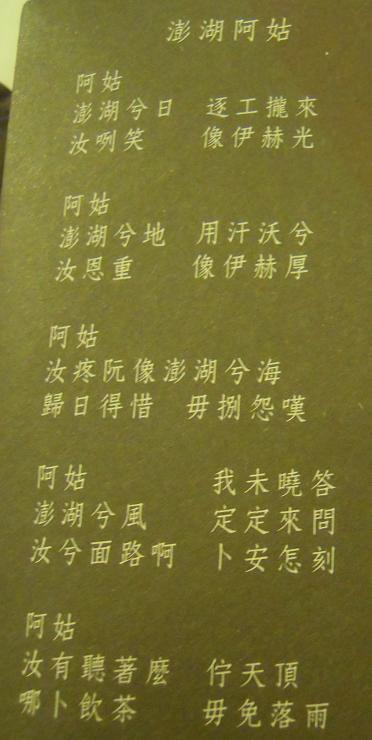 澎湖阿姑
阿姑
澎湖兮日 逐工攏來
汝咧笑 像伊赫光
阿姑
澎湖兮地 用汗沃兮
汝恩重 像伊赫厚
阿姑
汝疼阮像澎湖兮海
歸日得惜 毋捌怨嘆
阿姑 我未曉答
澎湖兮風 定定來問
汝兮面路啊 卜安怎刻
阿姑
汝有聽著麼 佇天頂
哪卜飲茶 毋免落雨